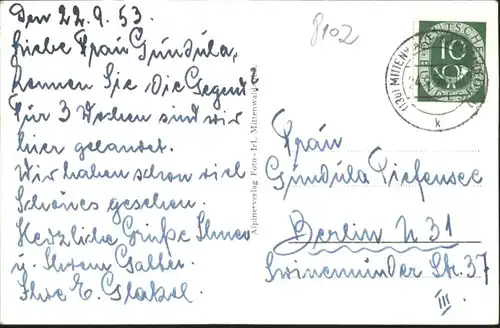 Den 22.9.53.
Liebe Frau Gundula,
kennen Sie die Gegend
Für 3 Wochen sind wir
hier gelandet.
Wir haben schon viel
Schönes gesehen.
Herzliche Grüße Ihnen
u. Ihrem Gatten.
Ihre E.
8102
DEUTSCHE BUNDESPOST
10
(13b) MITTENWALD
k
Alpinerverlag Foto-Irl, Mittenwald
Frau
Gundula Tiefensee
Berlin N 31
Swinemünder Str. 37
III.